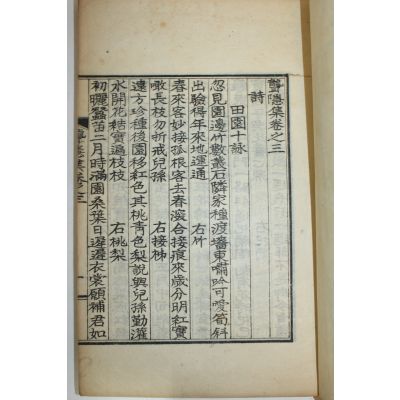 聾隱集卷之三
詩
田園十詠
忽見園邊竹數叢石隣家種渡墻東嘯吟可愛筍斜
出驗得年來地運通 右竹
春來客妙接孤根客去春深合接痕來歲分明紅實
瞰長枝勿折戒兒孫 右接柹
遠方珍種後園移紅色其桃青色梨說與兒孫勤灌
水開花結實遍枝枝 右桃梨
初曬蠶苗二月時滿園桑葉日遲遲衣裳願補君如